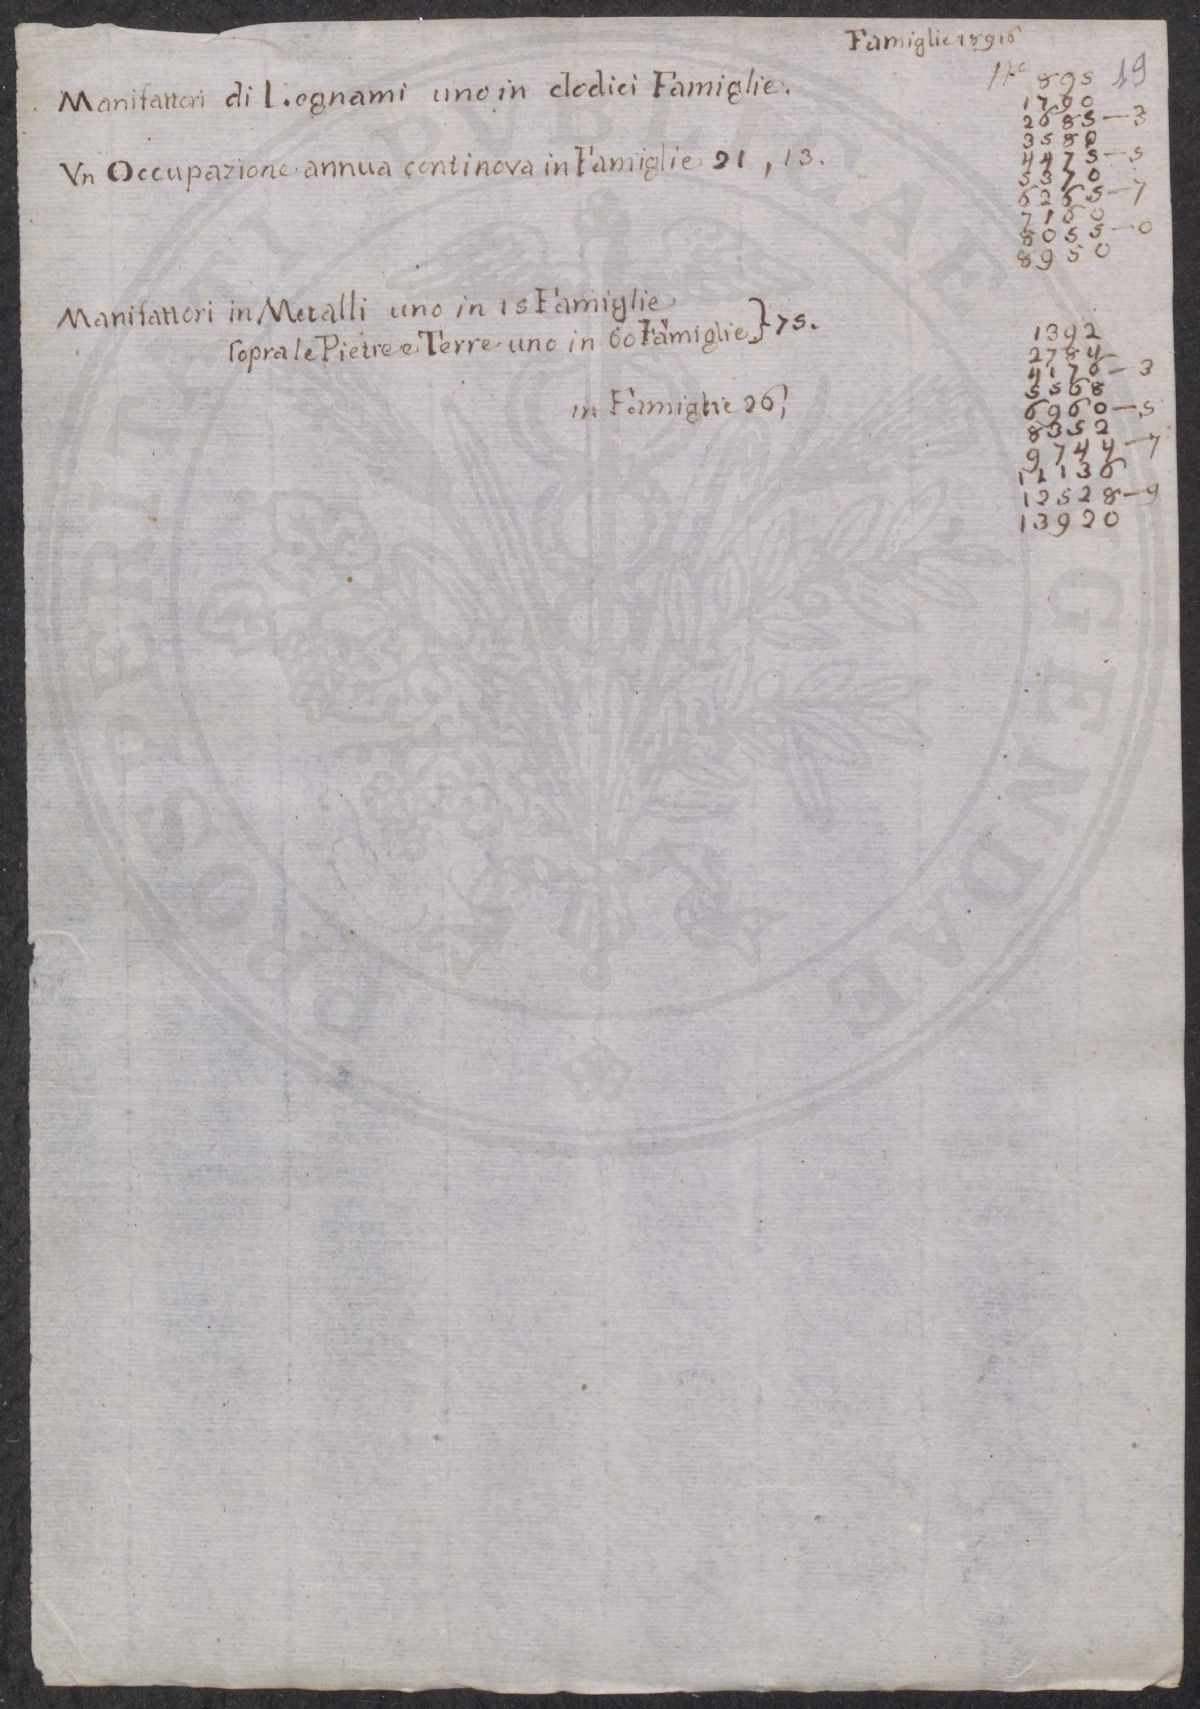 Famiglie 18916
19
Manifattori di Legnami uno in dodici Famiglie.
Vn Occupazione annua continova in Famiglie 21, 13.
895
1790
2685—3
3580
4475—5
5370
6265—7
7160
8055—0
8950
Manifattori in Metalli uno in 15 Famiglie
sopra le Pietre e Terre uno in 60 Famiglie } 75.
in Famiglie 26,
1392
2784
4176—3
5568
6960—5
8352
9744—7
11136
12528—9
13920
PROSPERITATI PVBLICAE AVGENDAE